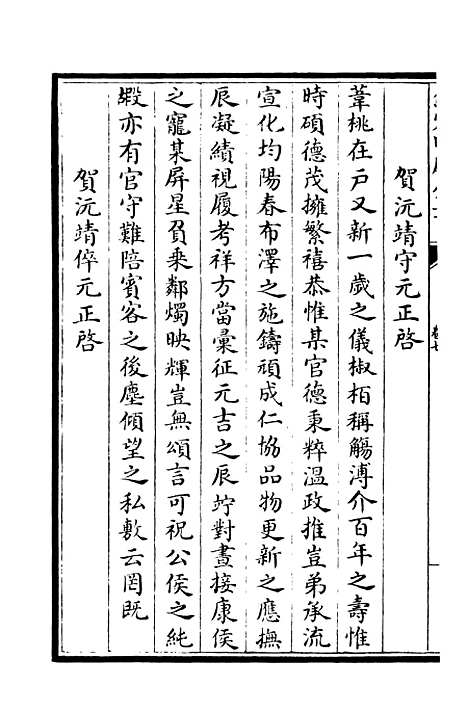 卷七
賀沅靖守元正啓
葦桃在戸又新一歲之儀椒栢稱觴溥介百年之壽惟
時碩德茂擁繁禧恭惟某官德秉粹溫政推豈弟承流
宣化均陽春布澤之施鑄頑成仁協品物更新之應撫
辰凝績視履考祥方當彙征元吉之辰竚對晝接康侯
之寵某屏星負乗鄰燭映輝豈無頌言可祝公侯之純
嘏亦有官守難陪賓客之後塵傾望之私敷云罔既
賀沅靖倅元正啓